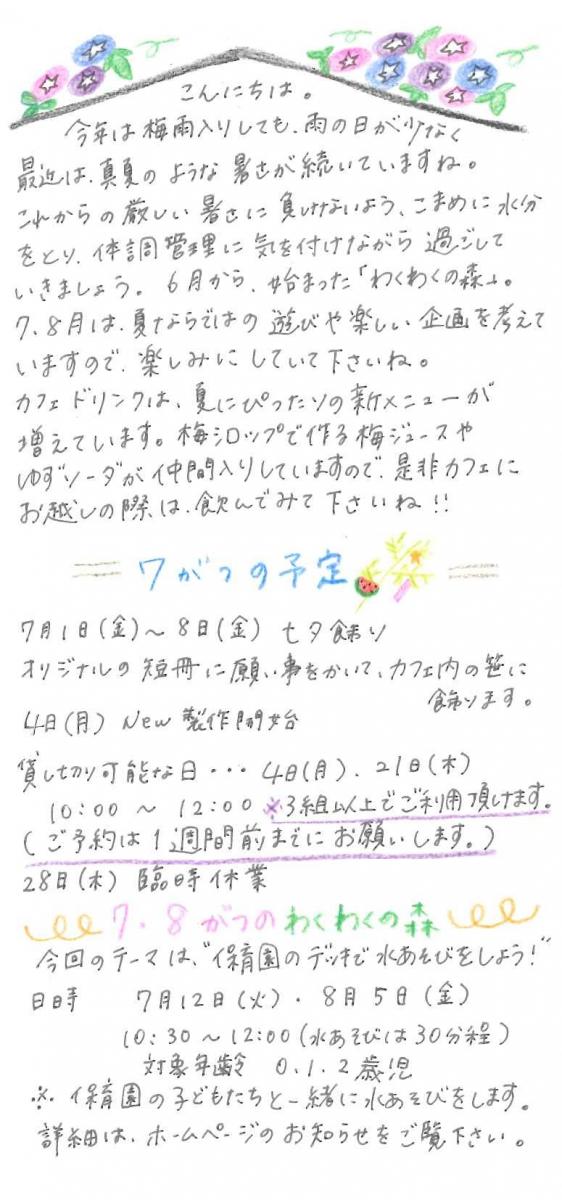 こんにちは。
今年は梅雨入りしても、雨の日が少なく
最近は、真夏のような暑さが続いていますね。
これからの厳しい暑さに負けないよう、こまめに水分
をとり、体調管理に気を付けながら過ごして
いきましょう。6月から、始まった「わくわくの森」。
7、8月は、夏ならではの遊びや楽しい企画を考えて
いますので、楽しみにしていて下さいね。
カフェドリンクは、夏にぴったりの新メニューが
増えています。梅シロップで作る梅ジュースや
ゆずソーダが仲間入りしていますので、是非カフェに
お越しの際は、飲んでみて下さいね!!
7がつの予定
7月1日(金)~8日(金) 七夕飾り
オリジナルの短冊に願い事をかいて、カフェ内の笹に
飾ります。
4日(月) New 製作開始
貸し切り可能な日・・・4日(月)、21日(木)
10:00 ~ 12:00 ※3組以上でご利用頂けます。
(ご予約は1週間前までにお願いします。)
28日(木) 臨時休業
7・8がつのわくわくの森
今回のテーマは、"保育園のデッキで水あそびをしよう!"
日時 7月12日(火)・8月5日(金)
10:30~12:00(水あそびは30分程)
対象年齢 0.1.2歳児
※保育園の子どもたちと一緒に水あそびをします。
詳細は、ホームページのお知らせをご覧下さい。